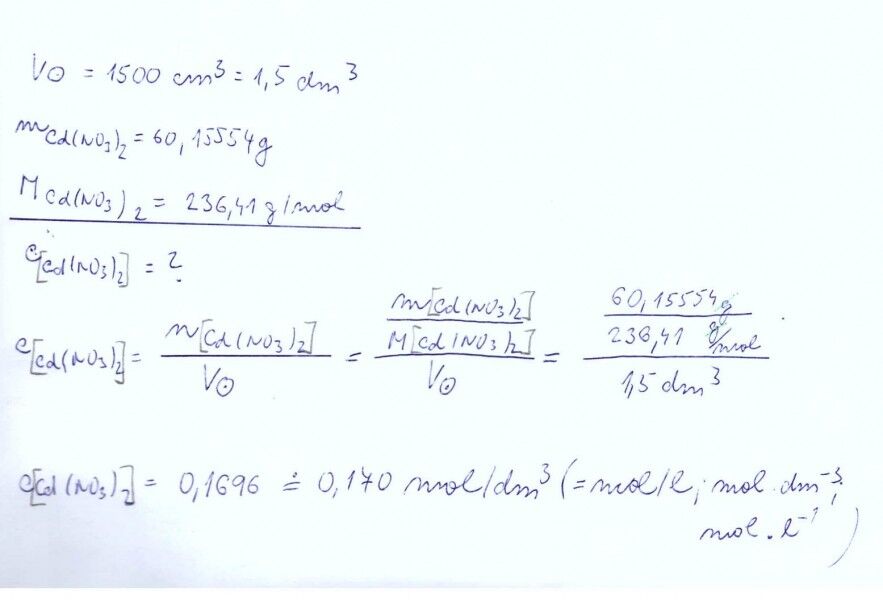 V⊙ = 1500 cm³ = 1,5 dm³
m Cd(NO₃)₂ = 60,15554g
M Cd(NO₃)₂ = 236,41 g/mol
c[Cd(NO₃)₂] = ?
c[Cd(NO₃)₂] = n[Cd(NO₃)₂] / V⊙ = m[Cd(NO₃)₂] / M[Cd(NO₃)₂] / V⊙ = 60,15554g / 236,41 g/mol / 1,5 dm³
c[Cd(NO₃)₂] = 0,1696 ≐ 0,170 mol/dm³ (= mol/l; mol.dm⁻³;
mol.l⁻¹)